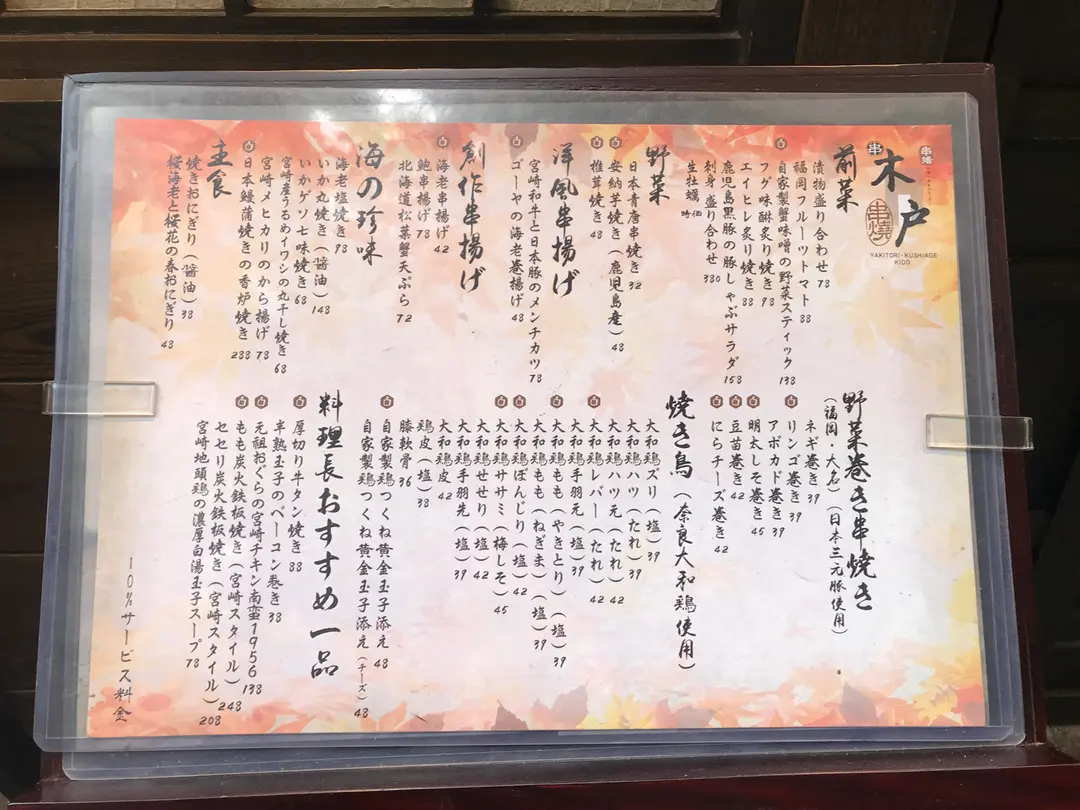 串
木戸
串焼
串焼
YAKITORI・KUSHIAGE
KIDO
前菜
漬物盛り合わせ 78
福岡フルーツトマト 88
自家製蟹味噌の野菜スティック 138
フグ味醂炙り焼き 98
エイヒレ炙り焼き 88
鹿児島黒豚の豚しゃぶサラダ 158
刺身盛り合わせ 380
生牡蠣 時価
野菜
日本青唐串焼き 32
安納芋焼き(鹿児島産) 48
椎茸焼き 48
洋風串揚げ
宮崎和牛と日本豚のメンチカツ 78
ゴーヤの海老巻揚げ 48
創作串揚げ
海老串揚げ 42
鮑串揚げ 78
北海道松葉蟹天ぷら 72
海の珍味
海老塩焼き 98
いか丸焼き(醤油) 148
いかゲソ七味焼き 68
宮崎産うるめイワシの丸干し焼き 68
宮崎メヒカリのから揚げ 78
日本鰻蒲焼きの香炉焼き 288
主食
焼きおにぎり(醤油) 38
桜海老と桜花の春おにぎり 48
野菜巻き串焼き
(福岡・大名)(日本三元豚使用)
ネギ巻き 39
リンゴ巻き 39
アボカド巻き 39
明太しそ巻き 45
豆苗巻き 42
にらチーズ巻き 42
焼き鳥(奈良大和鶏使用)
大和鶏ズリ(塩) 39
大和鶏ハツ(たれ) 39
大和鶏ハツ元(たれ) 42
大和鶏レバー(たれ) 42
大和鶏手羽元(塩) 39
大和鶏もも(やきとり)(塩) 39
大和鶏もも(ねぎま)(塩) 39
大和鶏ぼんじり(塩) 42
大和鶏ササミ(梅しそ) 45
大和鶏せせり(塩) 42
大和鶏手羽先(塩) 39
大和鶏皮 42
鶏皮(塩) 38
膝軟骨 36
自家製鶏つくね黄金玉子添え 48
自家製鶏つくね黄金玉子添え(チーズ) 48
料理長おすすめ一品
厚切り牛タン焼き 88
半熟玉子のベーコン巻き 38
元祖おぐらの宮崎チキン南蛮1956 138
もも炭火鉄板焼き(宮崎スタイル) 248
セセリ炭火鉄板焼き(宮崎スタイル) 208
宮崎地頭鶏の濃厚白湯玉子スープ 78
10%サービス料金